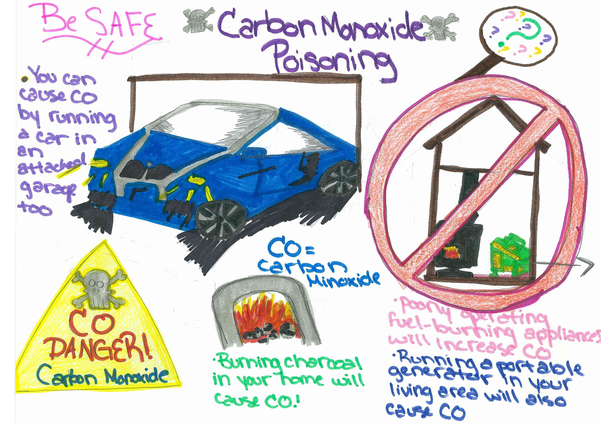 Be SAFE
Carbon Monoxide
Poisoning
• You can
cause CO
by running
a car in
an
attached
garage
too
CO
DANGER!
Carbon Monoxide
CO =
Carbon
Minoxide
• Burning charcoal
in your home will
cause CO!
• Poorly operating
fuel-burning appliances
will increase CO
• Running a portable
generator in your
living area will also
cause CO
?